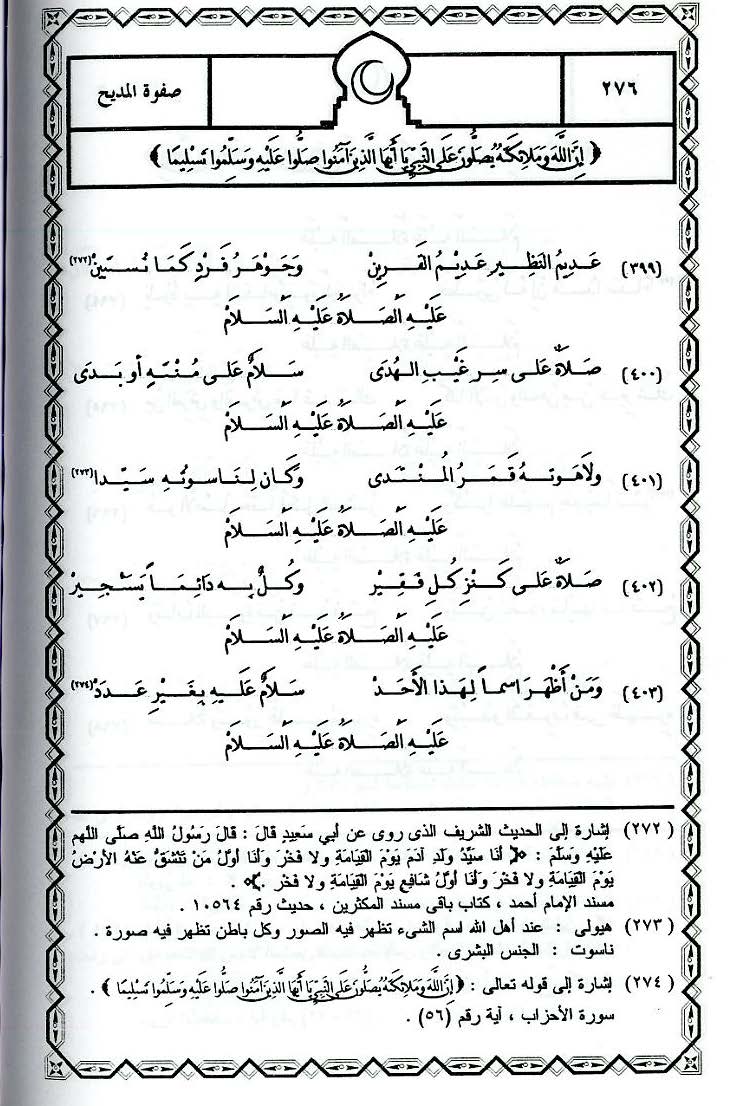 ٢٧٦
صفوة المديح
﴿ إِنَّ اللَّهَ وَمَلَائِكَتَهُ يُصَلُّونَ عَلَى النَّبِيِّ يَا أَيُّهَا الَّذِينَ آمَنُوا صَلُّوا عَلَيْهِ وَسَلِّمُوا تَسْلِيمًا ﴾
(٣٩٩) عَدِيمُ النَظِير عَدِيْمُ القَرِينْ وَجَوْهَرُ فَرْدٍ كَمَا تُسْتَبِينْ(٢٧٢)
عَلَيْهِ الصَّلَاةُ عَلَيْهِ السَّلَامُ
(٤٠٠) صَلَاةٌ عَلَى سِر غَيْبِ الهُدَى سَلَامٌ عَلَى مُنْتَهٍ أو بَدَى
عَلَيْهِ الصَّلَاةُ عَلَيْهِ السَّلَامُ
(٤٠١) ولاهوتهُ قَمَرُ المُنْتَدى وَكَان لِنَاسوتِه سَيّدا(٢٧٣)
عَلَيْهِ الصَّلَاةُ عَلَيْهِ السَّلَامُ
(٤٠٢) صَلَاةٌ عَلَى كَنْزِ كُلِ فَقِيْر وَكُلٌ بِه دَائِمَاً يَسْتَجِيرْ
عَلَيْهِ الصَّلَاةُ عَلَيْهِ السَّلَامُ
(٤٠٣) وَمَنْ أَظْهَرَ اسماً لِهَذا الأَحَدْ سَلَامٌ عَلَيهِ بِغَيْرِ عَدَدْ(٢٧٤)
عَلَيْهِ الصَّلَاةُ عَلَيْهِ السَّلَامُ
(٢٧٢) إشارة إلى الحديث الشريف الذى روى عن أبي سَعِيدٍ قالَ : قالَ رَسُولُ اللَّهِ صلَّى اللَّهم
عَلَيْهِ وَسَلَّمَ : ﴿ أنا سَيِّدُ ولَدِ آدَمَ يَوْمَ القِيَامَةِ ولا فَخْرَ وَأنا أوَّلُ مَنْ تَنْشَقُّ عَنْهُ الأرْضُ
يَوْمَ القِيَامَةِ ولا فَخْرَ وَأنَا أوَّلُ شَافِعٍ يَوْمَ القِيَامَةِ ولا فَخْرَ .﴾ .
مسند الإمام أحمد ، كتاب باقى مسند المكثرين ، حديث رقم ١٠٥٦٤ .
(٢٧٣) هيولى : عند أهل الله اسم الشىء تظهر فيه الصور وكل باطن تظهر فيه صورة .
ناسوت : الجنس البشرى .
(٢٧٤) إشارة إلى قوله تعالى : ﴿ إِنَّ اللَّهَ وَمَلَائِكَتَهُ يُصَلُّونَ عَلَى النَّبِيِّ يَا أَيُّهَا الَّذِينَ آمَنُوا صَلُّوا عَلَيْهِ وَسَلِّمُوا تَسْلِيمًا ﴾ .
سورة الأحزاب ، آية رقم (٥٦) .